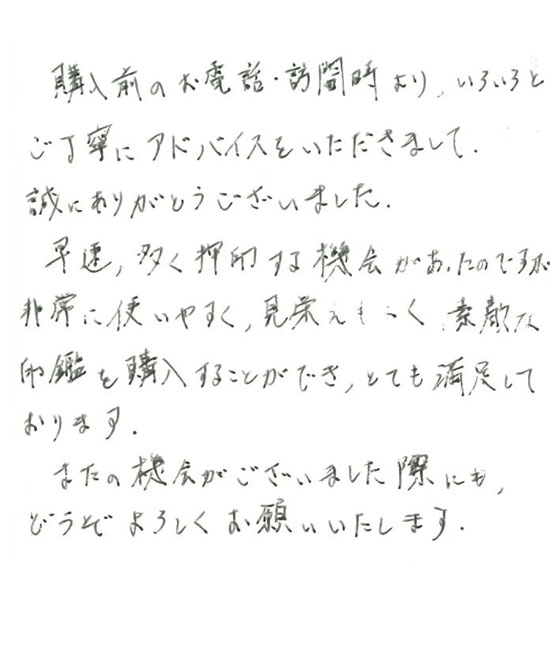 購入前のお電話・訪問時より、いろいろと
ご丁寧にアドバイスをいただきまして、
誠にありがとうございました。
早速、多く押印する機会があったのですが
非常に使いやすく、見栄えもよく、素敵な
印鑑を購入することができ、とても満足して
おります。
またの機会がございました際にも、
どうぞよろしくお願いいたします。